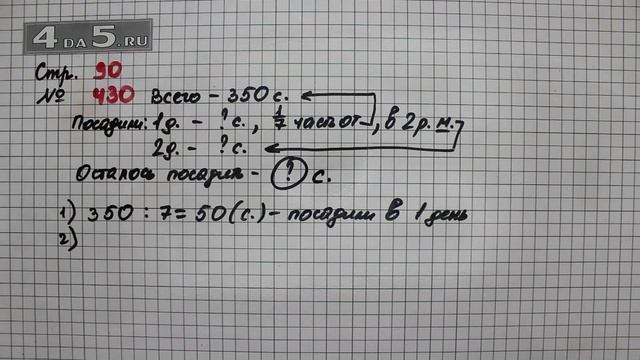 4DA5.RU
Стр. 90
№ 430 Всего - 350 с.
Посадили: 1 д. - ? с., 1/7 часть от, в 2 р. м.
2 д. - ? с.
Осталось посадить - ? с.
1) 350 : 7 = 50 (с.) - посадили в 1 день
2)